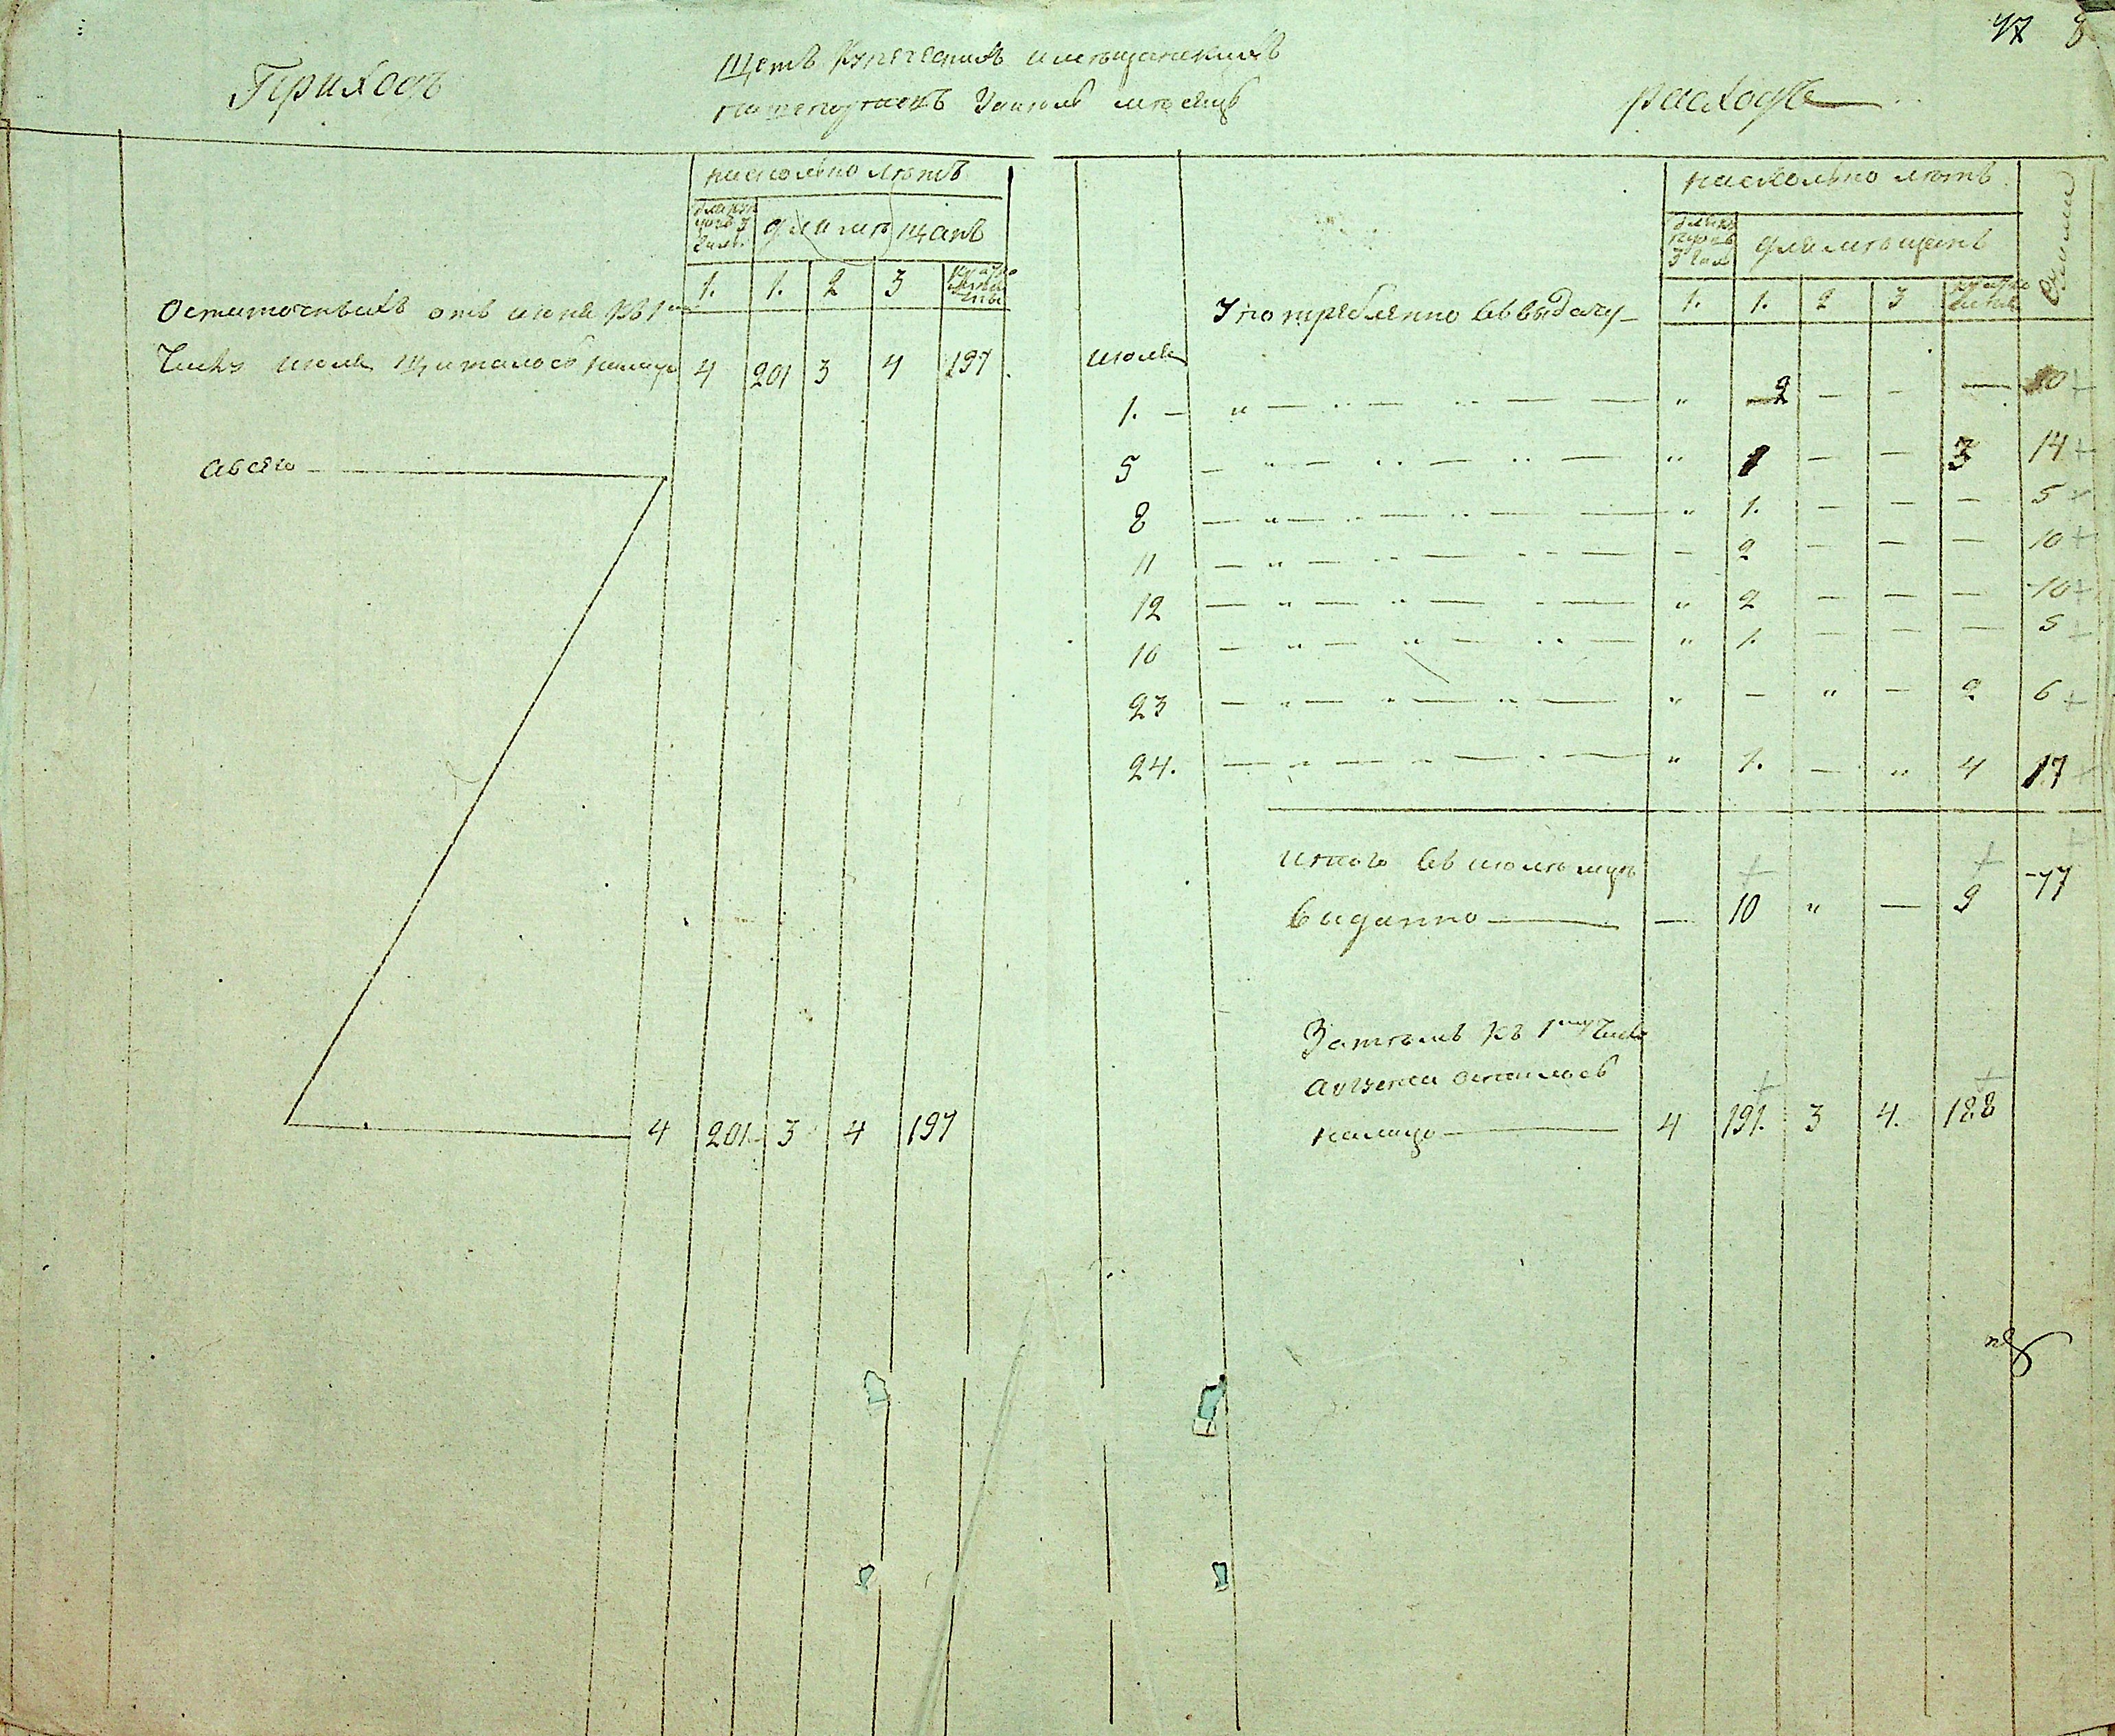 47
Приходъ
Щетъ купеческимъ и мещанскимъ
за июль месяцъ
расходъ
насколько летъ
для мещанъ
1. 1. 2 3
Остаточныхъ отъ июня къ 1
числу июля щиталось налицо 4 201 3 4 197
а всего
4 201 3 4 197
насколько летъ
для мещанъ
1. 1. 2 3
Употребленно въ выдачу
июля
1. — " — — 2 — — — 10
5 — " — — " 1 — — 3 14
8 — " — — " 1. — — — 5
11 — " — — — 2 — — — 10
12 — " — — " 2 — — — 10
16 — " — — " 1. — — — 5
23 — " — — " — " — 2 6
24. — " — — " 1. — " 4 17
итого въ июле мце 77
выданно — — 10 " — 9
Затемъ къ 1 числу
августа осталось
налицо — 4 191. 3 4. 188